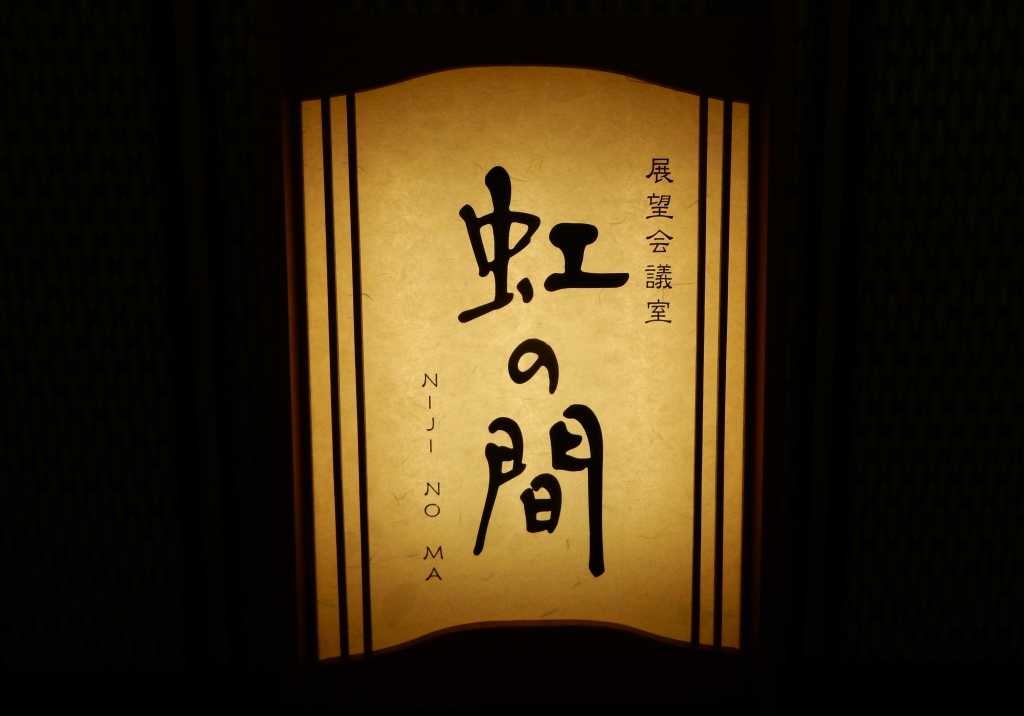 展望会議室
虹の間
NIJI NO MA